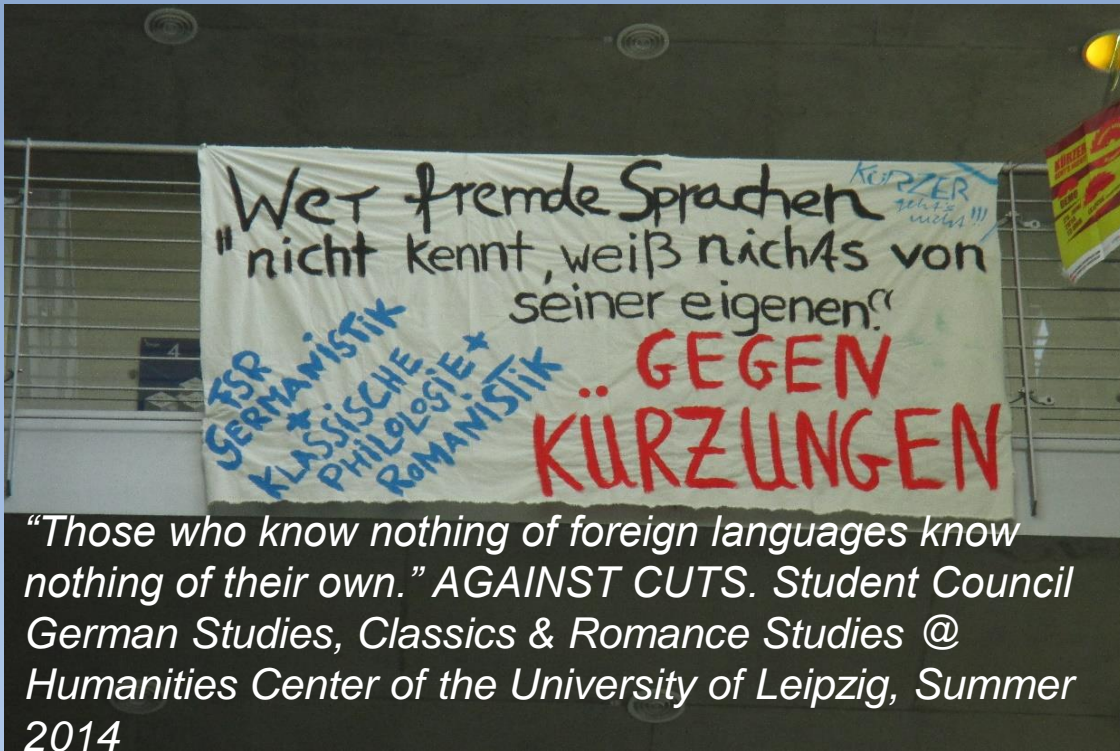 "Wer fremde Sprachen
nicht kennt, weiß nichts von
seiner eigenen."
KÜRZER
geht's
nicht!!!
GEGEN
KÜRZUNGEN
FSR
GERMANISTIK
*
KLASSISCHE
PHILOLOGIE *
ROMANISTIK
4
KÜRZER
“Those who know nothing of foreign languages know
nothing of their own.” AGAINST CUTS. Student Council
German Studies, Classics & Romance Studies @
Humanities Center of the University of Leipzig, Summer
2014